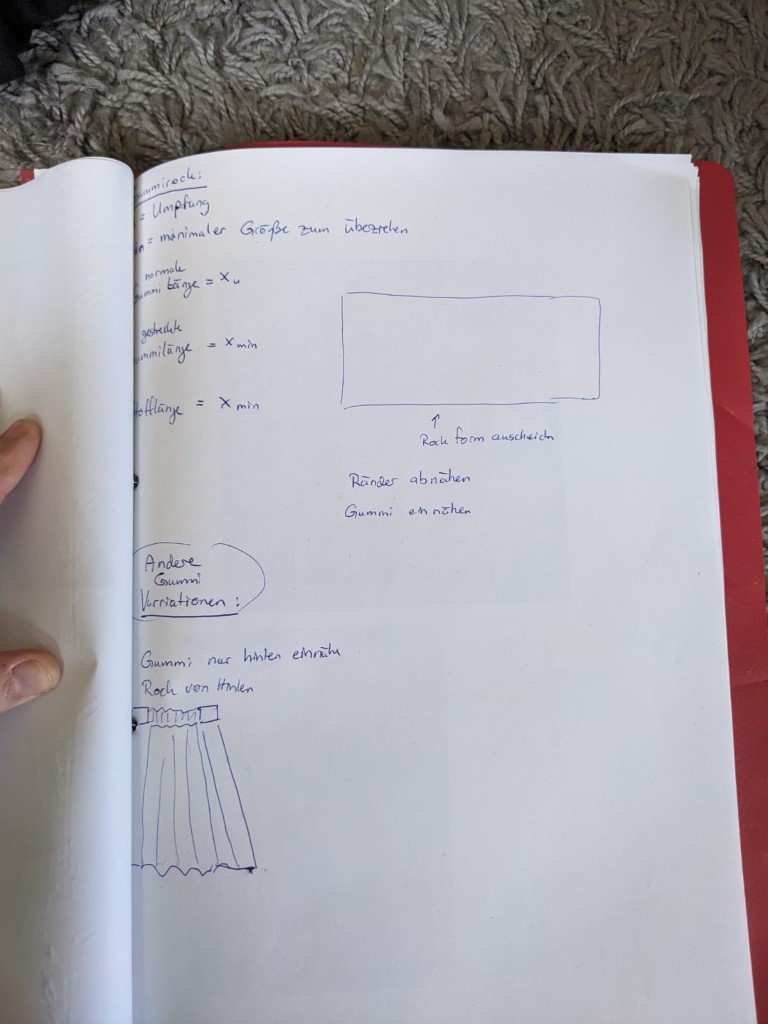 ummirock:
= Umpfung
in = minimaler Größe zum überziehen
normale
ummi Länge = xu
gestreckte
ummilänge = xmin
tofflänge = xmin
↑
Rock form
Ränder abnähen
Gummi einnähen
Andere
Gummi
Varriationen:
Gummi nur hinten einnähn
Rock von Hinten